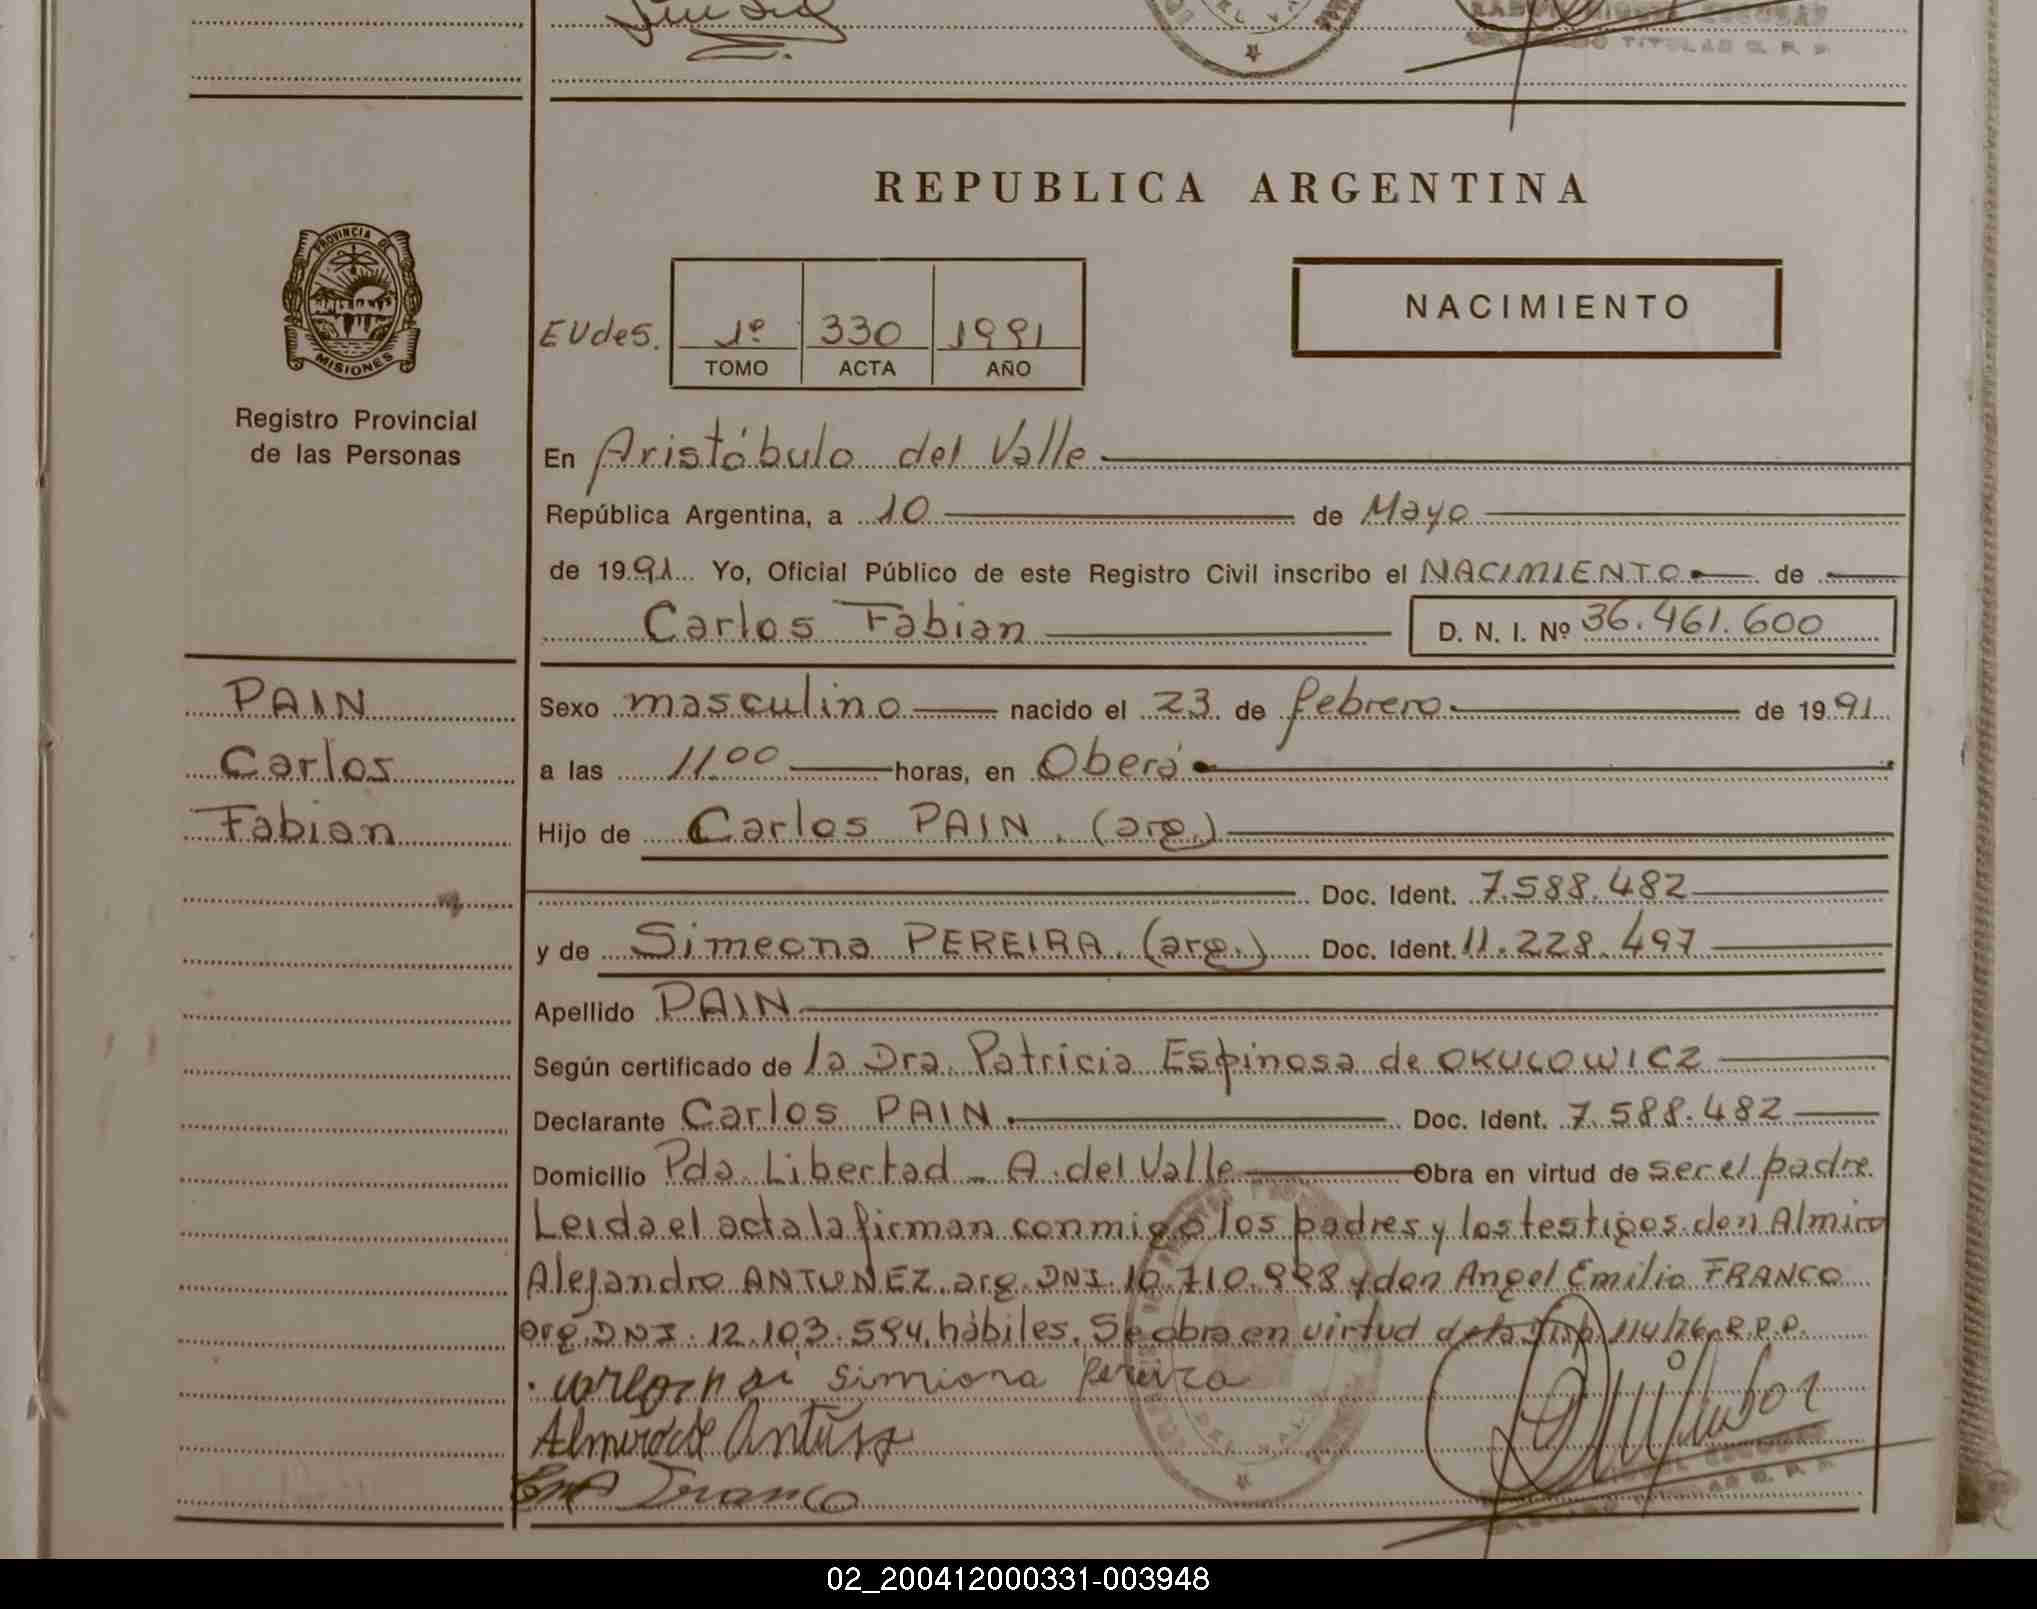 TITULAR R. P. P.
REPUBLICA ARGENTINA
PROVINCIA DE
MISIONES
Registro Provincial
de las Personas
NACIMIENTO
EUdes. 1º 330 1991
TOMO ACTA AÑO
En Aristóbulo del Valle
República Argentina, a 10 de Mayo
de 1991 Yo, Oficial Público de este Registro Civil inscribo el NACIMIENTO de
Carlos Fabian D. N. I. Nº 36.461.600
PAIN
Carlos
Fabian
Sexo masculino nacido el 23 de febrero de 1991
a las 11.00 horas, en Oberá
Hijo de Carlos PAIN. (arg.)
Doc. Ident. 7.588.482
y de Simeona PEREIRA. (arg.) Doc. Ident. 11.228.497
Apellido PAIN
Según certificado de la Dra. Patricia Espinosa de OKULOWICZ
Declarante Carlos PAIN. Doc. Ident. 7.588.482
Domicilio Pda. Libertad - A. del Valle Obra en virtud de ser el padre.
Leida el acta la firman conmigo los padres y los testigos don Almiro
Alejandro ANTUNEZ. arg. DNI. y don Angel Emilio FRANCO
arg. DNI. 12.103.594, hábiles. Se obra en virtud de la Disp. 114/76 R.P.P.
Simiona Pereira
Franco
02_200412000331-003948